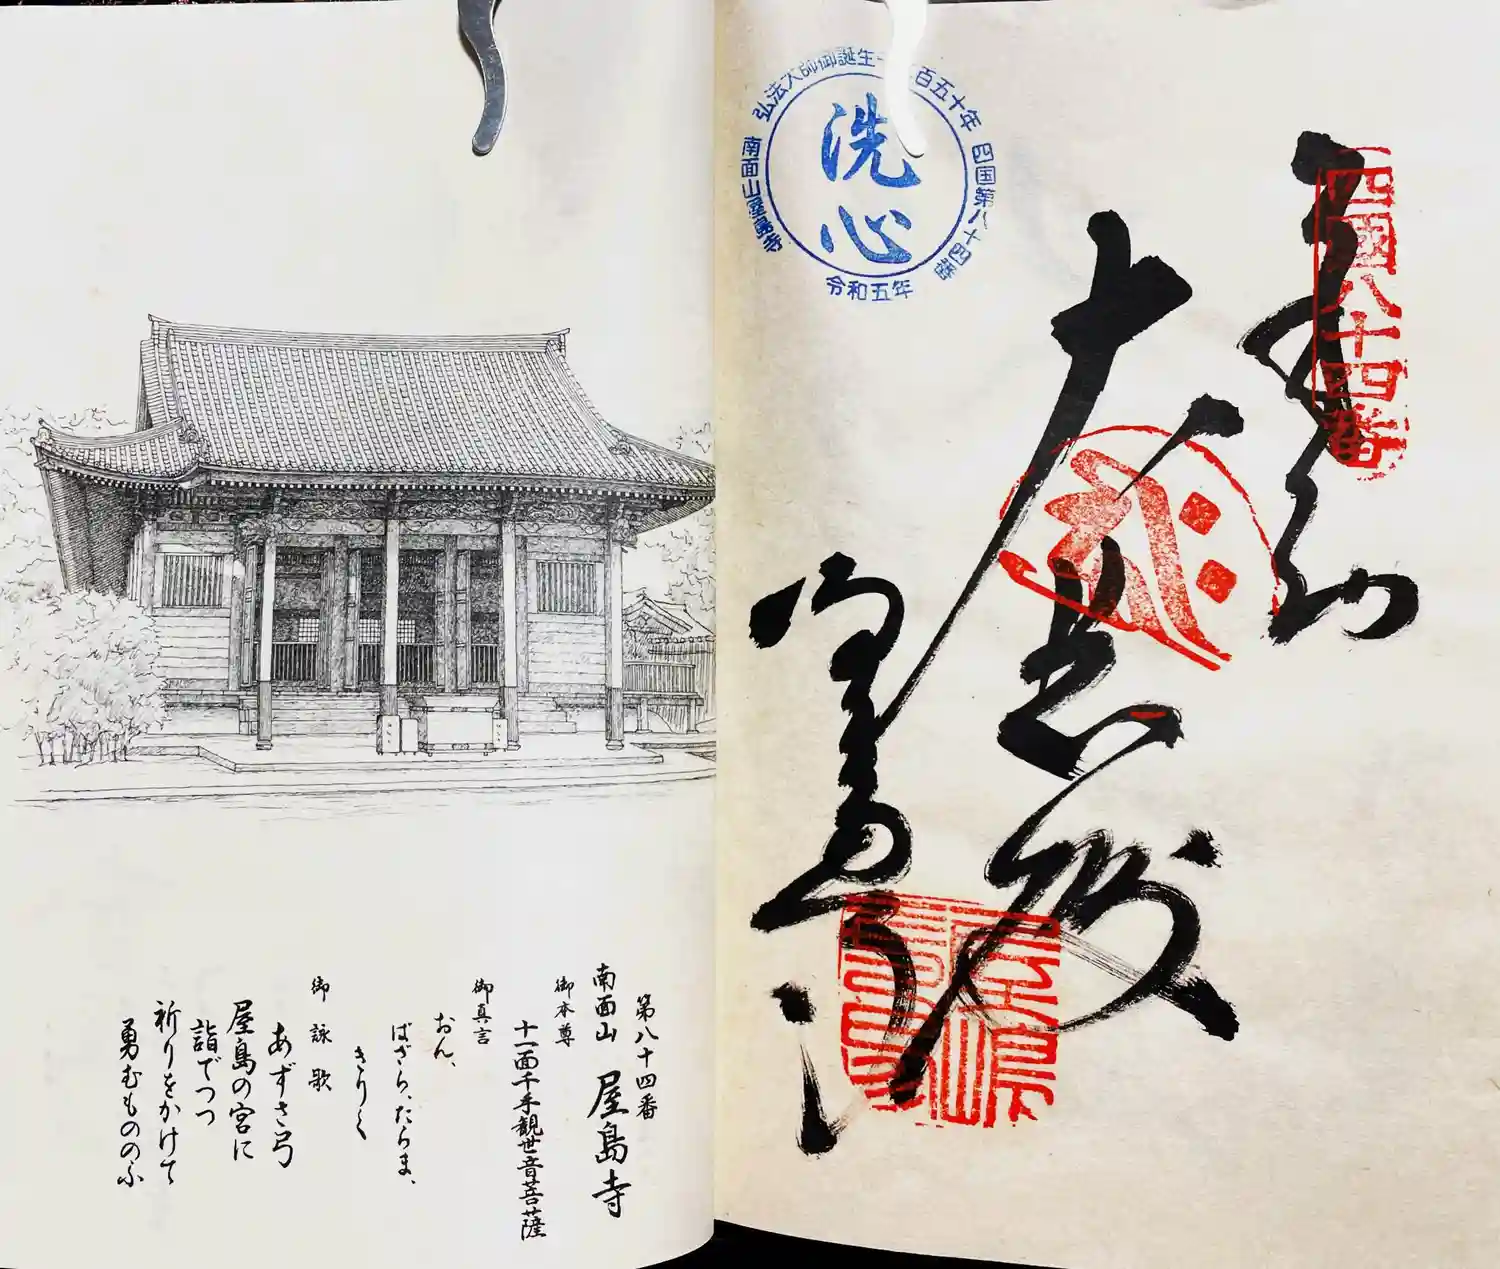 四國八十四番
奉納
大悲殿
屋島寺
洗心
南面山屋島寺
弘法大師御誕生千 百五十年
四国第八十四番
令和五年
第八十四番
南面山 屋島寺
御本尊
十一面千手観世音菩薩
御真言
おん、
ばざら、たらま、
きりく
御詠歌
あずさ弓
屋島の宮に
詣でつつ
祈りをかけて
勇むもののふ